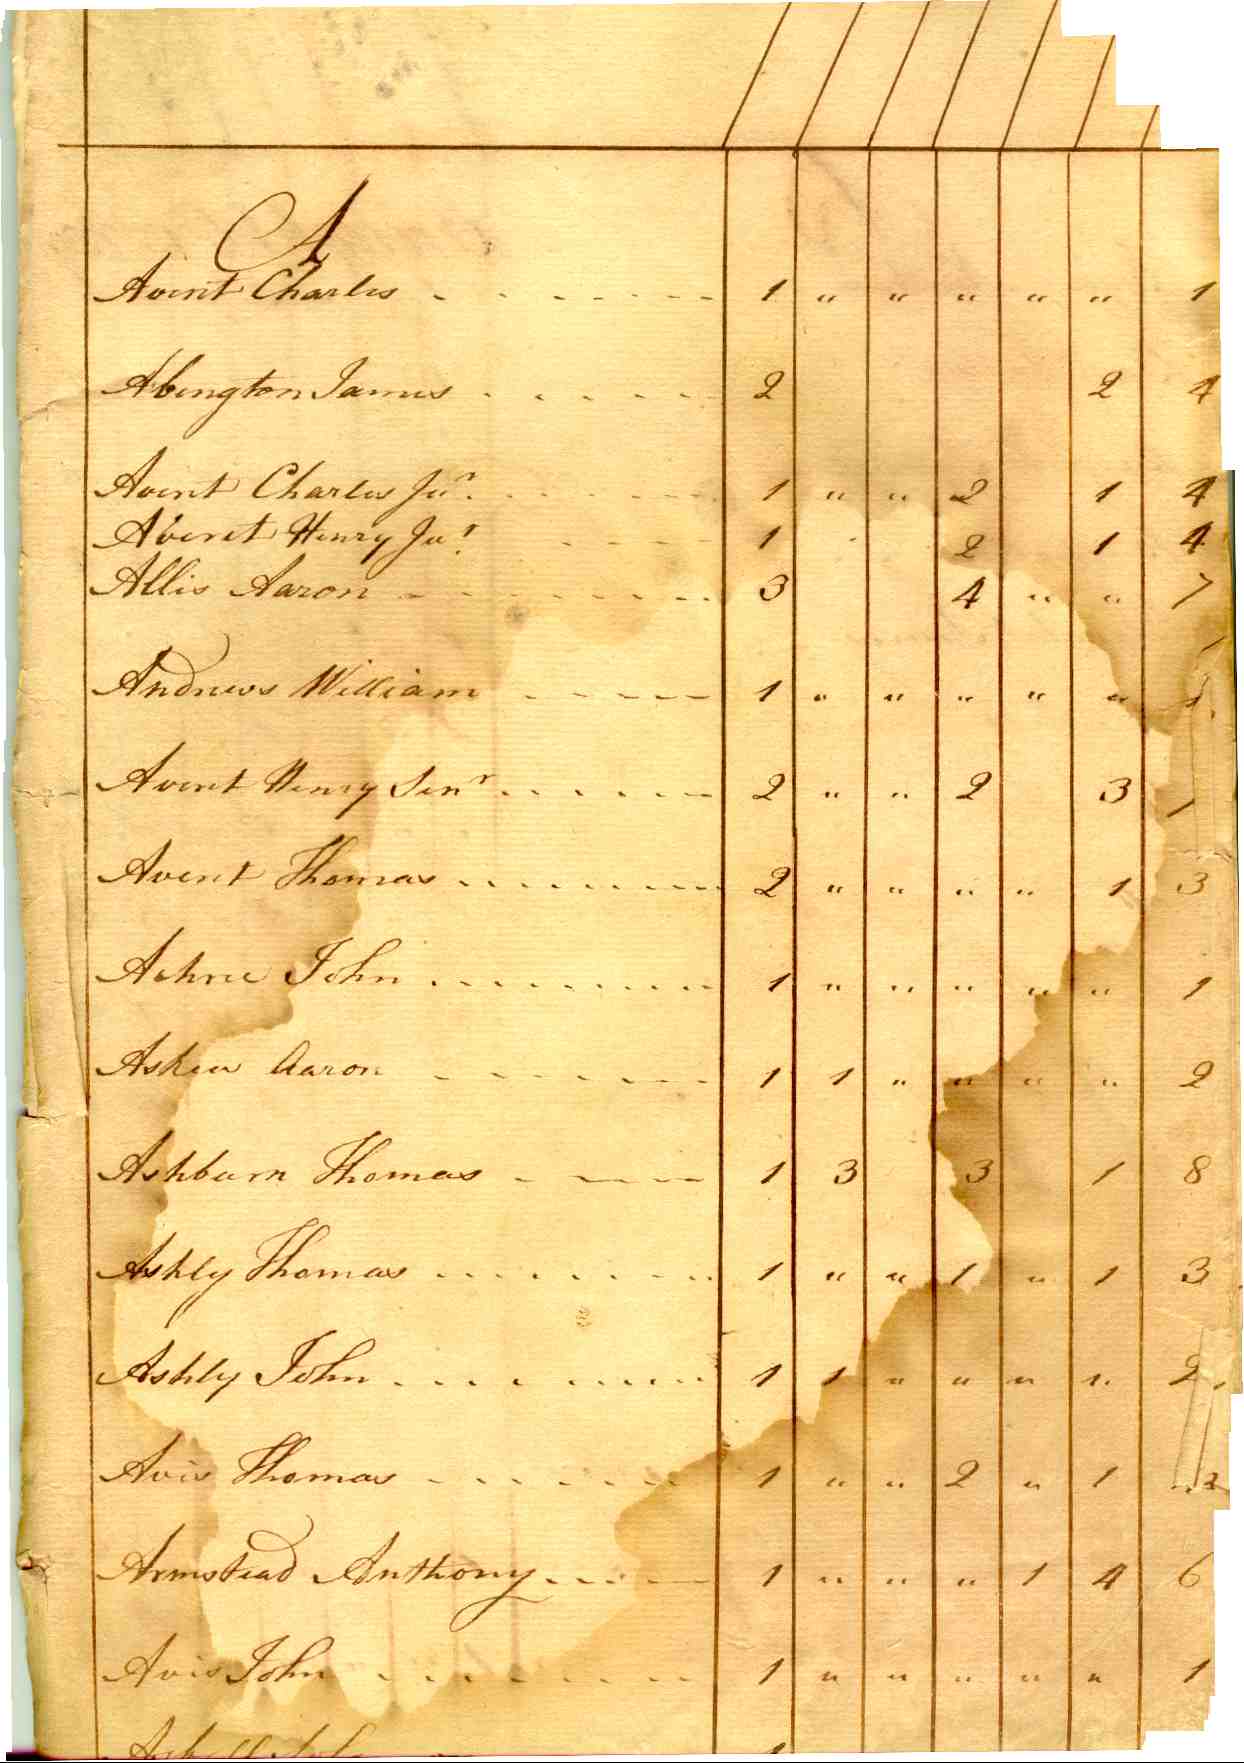 A
Avent Charles 1 " " " " " 1
Abington James 2 2 4
Avent Charles Junr. 1 " " 2 1 4
Avent Henry Junr. 1 2 1 4
Allis Aaron 3 4 " " 7
Andrews William 1 " " " " " 1
Avent Henry Senr 2 " " 2 3
Avent Thomas 2 " " " " 1 3
John 1 " " " " " 1
Askew Aaron 1 1 " " " " 2
Ashburn Thomas 1 3 3 1 8
Ashly Thomas 1 " " 1 " 1 3
Ashly John 1 1 " " " " 2
Avis Thomas 1 " " 2 " 1
Armstead Anthony 1 " " " 1 4 6
Avis John 1 " " " " " 1